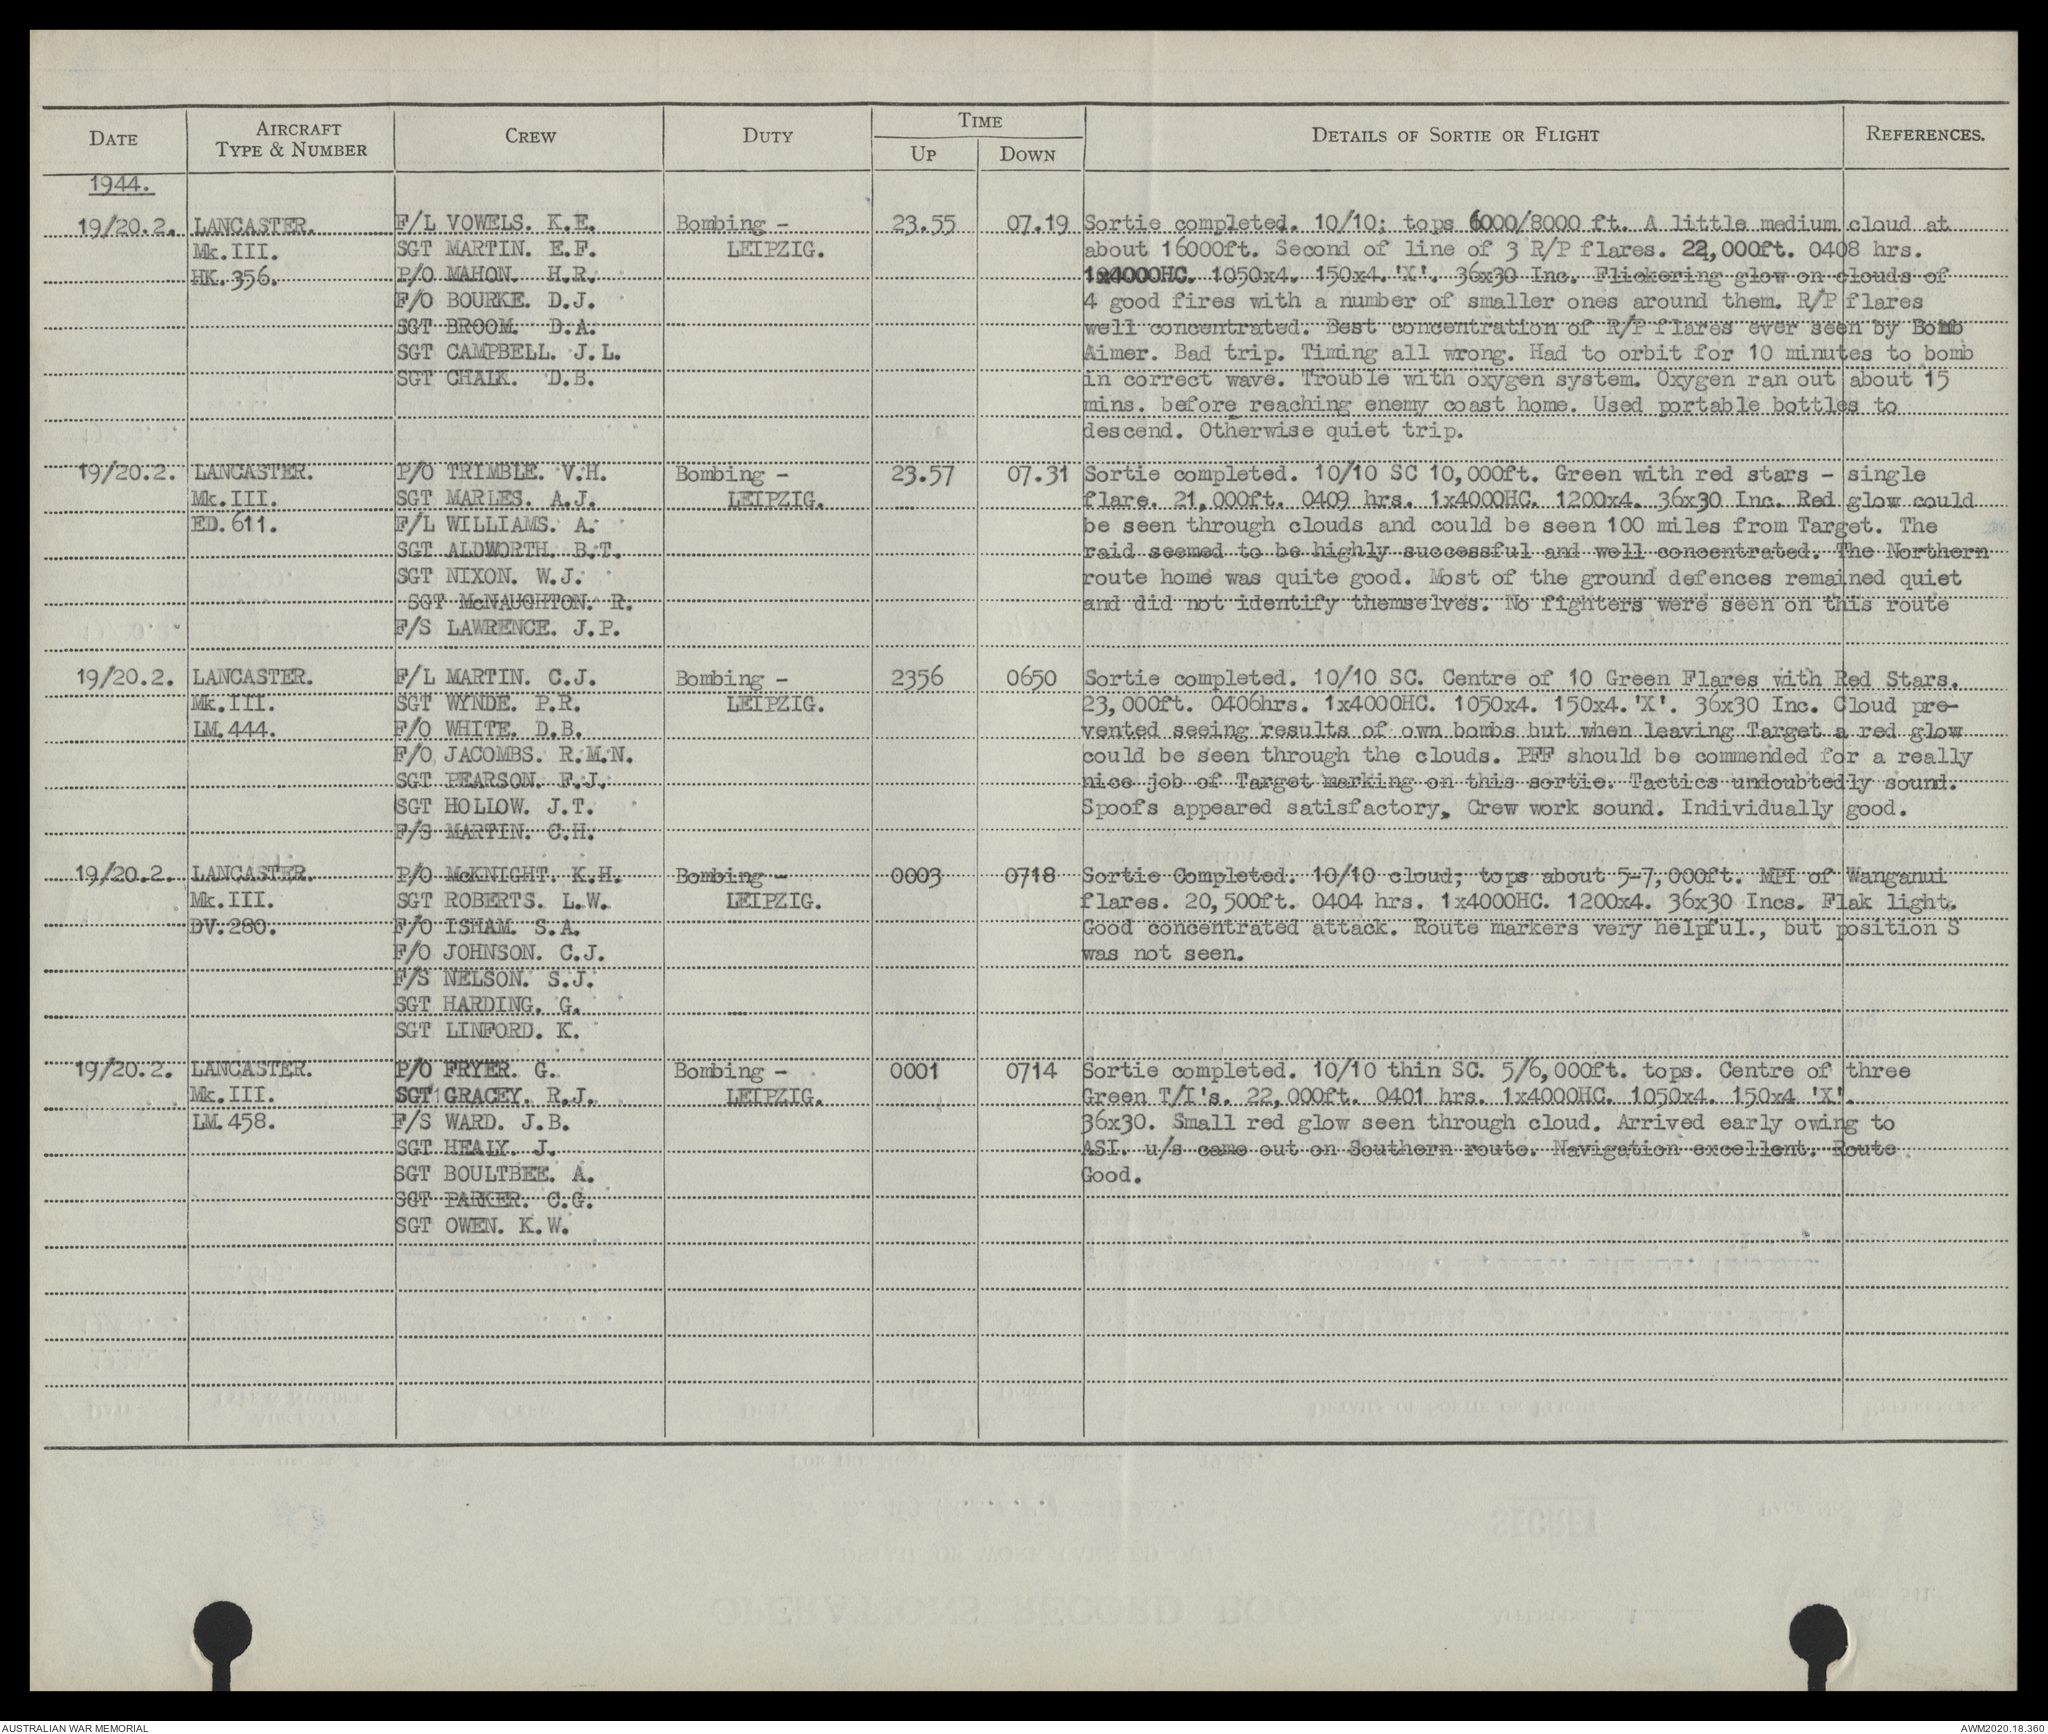 DATE AIRCRAFT TYPE & NUMBER CREW DUTY TIME UP DOWN DETAILS OF SORTIE OR FLIGHT REFERENCES.
1944.
19/20.2. LANCASTER. F/L VOWELS. K.E. Bombing - 23.55 07.19 Sortie completed. 10/10; tops 6000/8000 ft. A little medium cloud at
Mk.III. SGT MARTIN. E.F. LEIPZIG. about 16000ft. Second of line of 3 R/P flares. 22,000ft. 0408 hrs.
HK.356. P/O MAHON. H.R. 1x4000HC. 1050x4. 150x4.'X'. 36x30 Inc. Flickering glow on clouds of
F/O BOURKE. D.J. 4 good fires with a number of smaller ones around them. R/P flares
SGT BROOM. D.A. well concentrated. Best concentration of R/P flares ever seen by Bomb
SGT CAMPBELL. J.L. Aimer. Bad trip. Timing all wrong. Had to orbit for 10 minutes to bomb
SGT CHALK. D.B. in correct wave. Trouble with oxygen system. Oxygen ran out about 15
mins. before reaching enemy coast home. Used portable bottles to
descend. Otherwise quiet trip.
19/20.2. LANCASTER. P/O TRIMBLE. V.H. Bombing - 23.57 07.31 Sortie completed. 10/10 SC 10,000ft. Green with red stars - single
Mk.III. SGT MARLES. A.J. LEIPZIG. flare. 21,000ft. 0409 hrs. 1x4000HC. 1200x4. 36x30 Inc. Red glow could
ED.611. F/L WILLIAMS. A. be seen through clouds and could be seen 100 miles from Target. The
SGT ALDWORTH. B.T. raid seemed to be highly successful and well concentrated. The Northern
SGT NIXON. W.J. route home was quite good. Most of the ground defences remained quiet
SGT McNAUGHTON. R. and did not identify themselves. No fighters were seen on this route
F/S LAWRENCE. J.P.
19/20.2. LANCASTER. F/L MARTIN. C.J. Bombing - 2356 0650 Sortie completed. 10/10 SC. Centre of 10 Green Flares with Red Stars.
Mk.III. SGT WYNDE. P.R. LEIPZIG. 23,000ft. 0406hrs. 1x4000HC. 1050x4. 150x4.'X'. 36x30 Inc. Cloud pre-
LM.444. F/O WHITE. D.B. vented seeing results of own bombs but when leaving Target a red glow
F/O JACOMBS. R.M.N. could be seen through the clouds. PFF should be commended for a really
SGT PEARSON. F.J. nice job of Target marking on this sortie. Tactics undoubtedly sound.
SGT HOLLOW. J.T. Spoofs appeared satisfactory, Crew work sound. Individually good.
F/S MARTIN. C.H.
19/20.2. LANCASTER. P/O McKNIGHT. K.H. Bombing - 0003 0718 Sortie Completed. 10/10 cloud; tops about 5-7,000ft. MPI of Wanganui
Mk.III. SGT ROBERTS. L.W. LEIPZIG. flares. 20,500ft. 0404 hrs. 1x4000HC. 1200x4. 36x30 Incs. Flak light.
DV.280. F/O ISHAM. S.A. Good concentrated attack. Route markers very helpful., but position S
F/O JOHNSON. C.J. was not seen.
F/S NELSON. S.J.
SGT HARDING. G.
SGT LINFORD. K.
19/20.2. LANCASTER. P/O FRYER. G. Bombing - 0001 0714 Sortie completed. 10/10 thin SC. 5/6,000ft. tops. Centre of three
Mk.III. SGT GRACEY. R.J. LEIPZIG. Green T/I's. 22,000ft. 0401 hrs. 1x4000HC. 1050x4. 150x4 'X'.
LM.458. F/S WARD. J.B. 36x30. Small red glow seen through cloud. Arrived early owing to
SGT HEALY. J. ASI. u/s came out on Southern route. Navigation excellent. Route
SGT BOULTBEE. A. Good.
SGT PARKER. C.G.
SGT OWEN. K.W.
AUSTRALIAN WAR MEMORIAL AWM2020.18.360